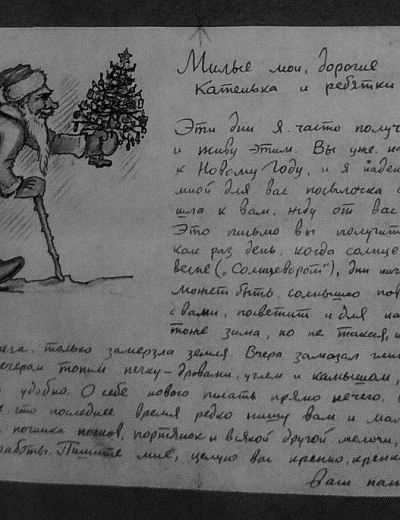 Милые мои, дорогие
Катенька и ребятки
Эти дни я часто получ
и живу этим. Вы уже на
к Новому Году, и я надею
мной для вас посылочка
шла к вам. жду от вас
Это письмо вы получит
как раз день, когда солнце
весне („Солнцеворот“), дни нач
Может быть, солнышко пов
с вами, посветит и для на
тоже зима, но не такая, к
нега, только замерзла земля. Вчера замазал гли
вечерам топим печку-дровами, углем и камышом,
удобно. О себе нового писать прямо нечего.
что последнее время редко пишу вам и мал
починка носков, портянок и всякой другой мелочи,
работы. Пишите мне, целую вас крепко, крепк
Ваш пап